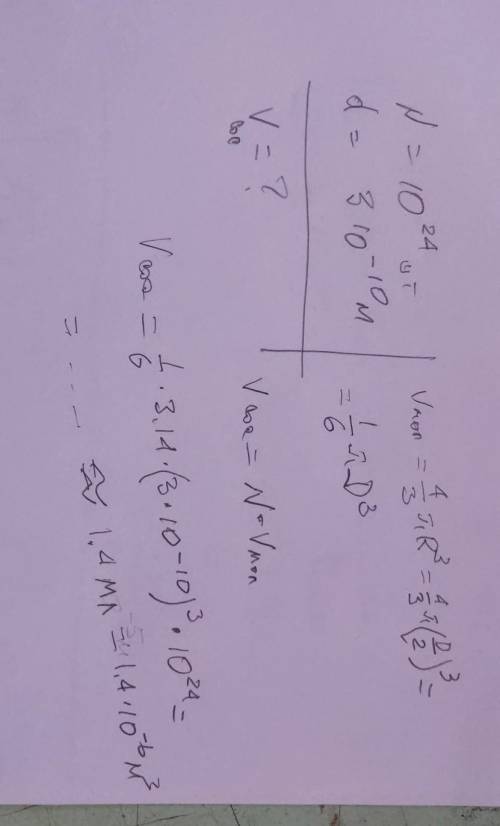 N = 10²⁴ шт
d = 3 10⁻¹⁰ м
V = ?
Vмол = 4/3 πR³ = 4/3 π(D/2)³ =
= 1/6 πD³
= N · Vмол
= 1/6 · 3.14 · (3 · 10⁻¹⁰)³ · 10²⁴ =
= ... ≈ 1.4 мл = 1.4 · 10⁻⁶ м³